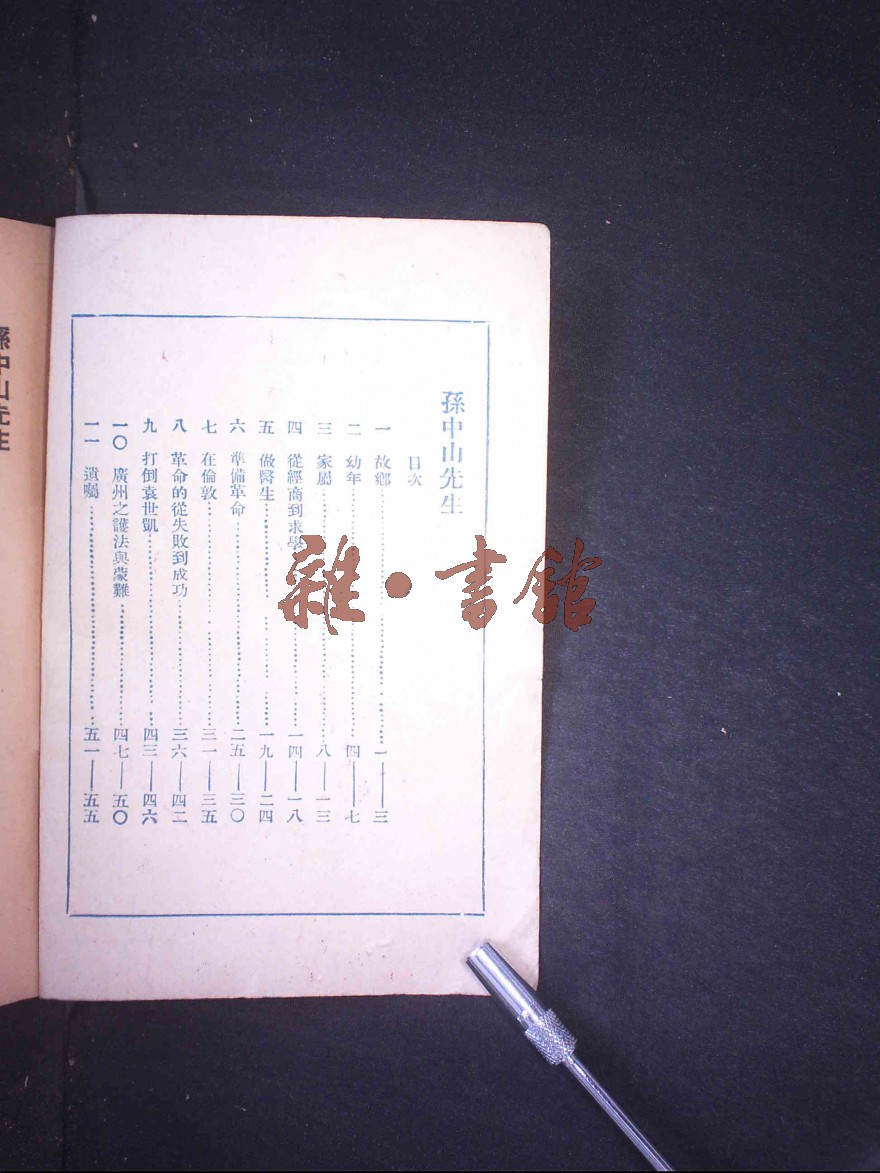 孫中山先生
目次
一 故鄉 一——三
二 幼年 四——七
三 家屬 八——一三
四 從經商到求學 一四——一八
五 做醫生 一九——二四
六 準備革命 二五——三〇
七 在倫敦 三一——三五
八 革命的從失敗到成功 三六——四二
九 打倒袁世凱 四三——四六
一〇 廣州之護法與蒙難 四七——五〇
一一 遺囑 五一——五五
孫中山先生
雜·書館